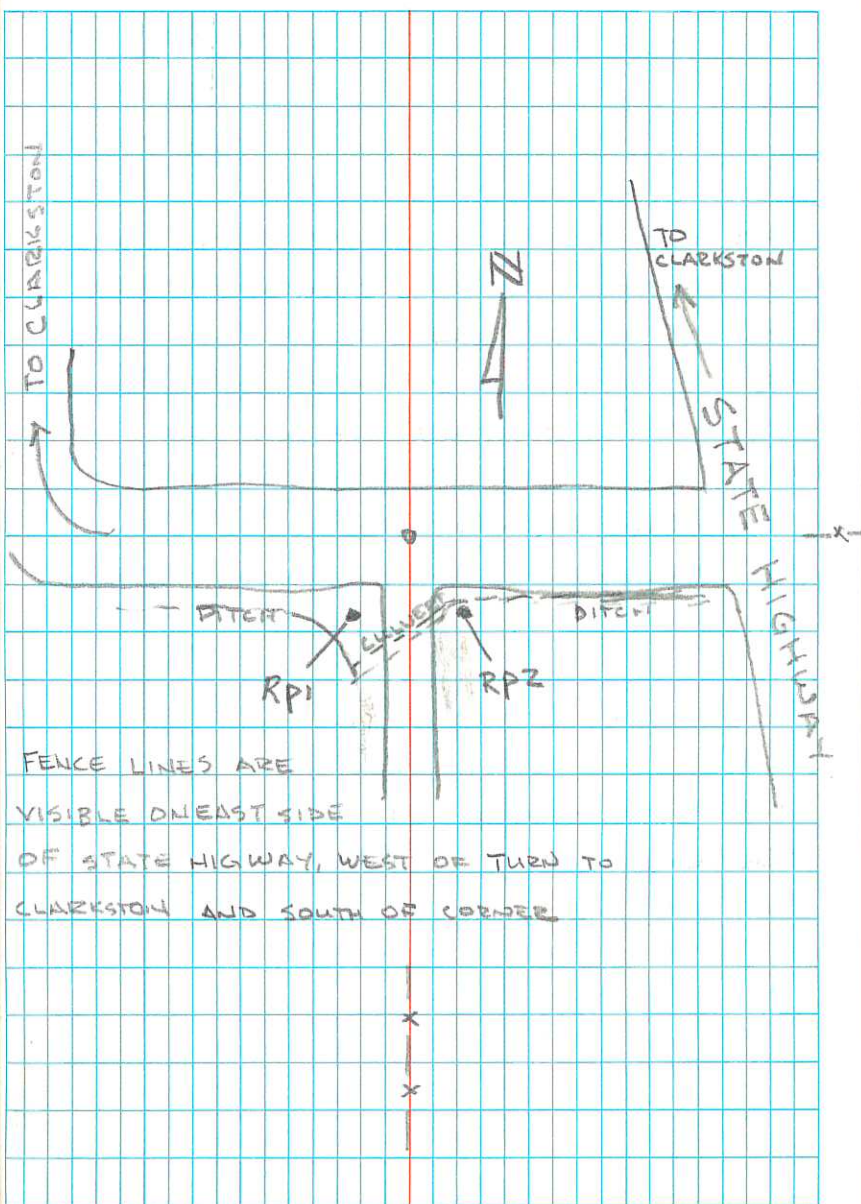 TO CLARKSTON
N
TO
CLARKSTON
STATE HIGHWAY
x
DITCH
CULVERT
DITCH
RP1
RP2
FENCE LINES ARE
VISIBLE ON EAST SIDE
OF STATE HIGWAY, WEST OF TURN TO
CLARKSTON AND SOUTH OF CORNER
x
x